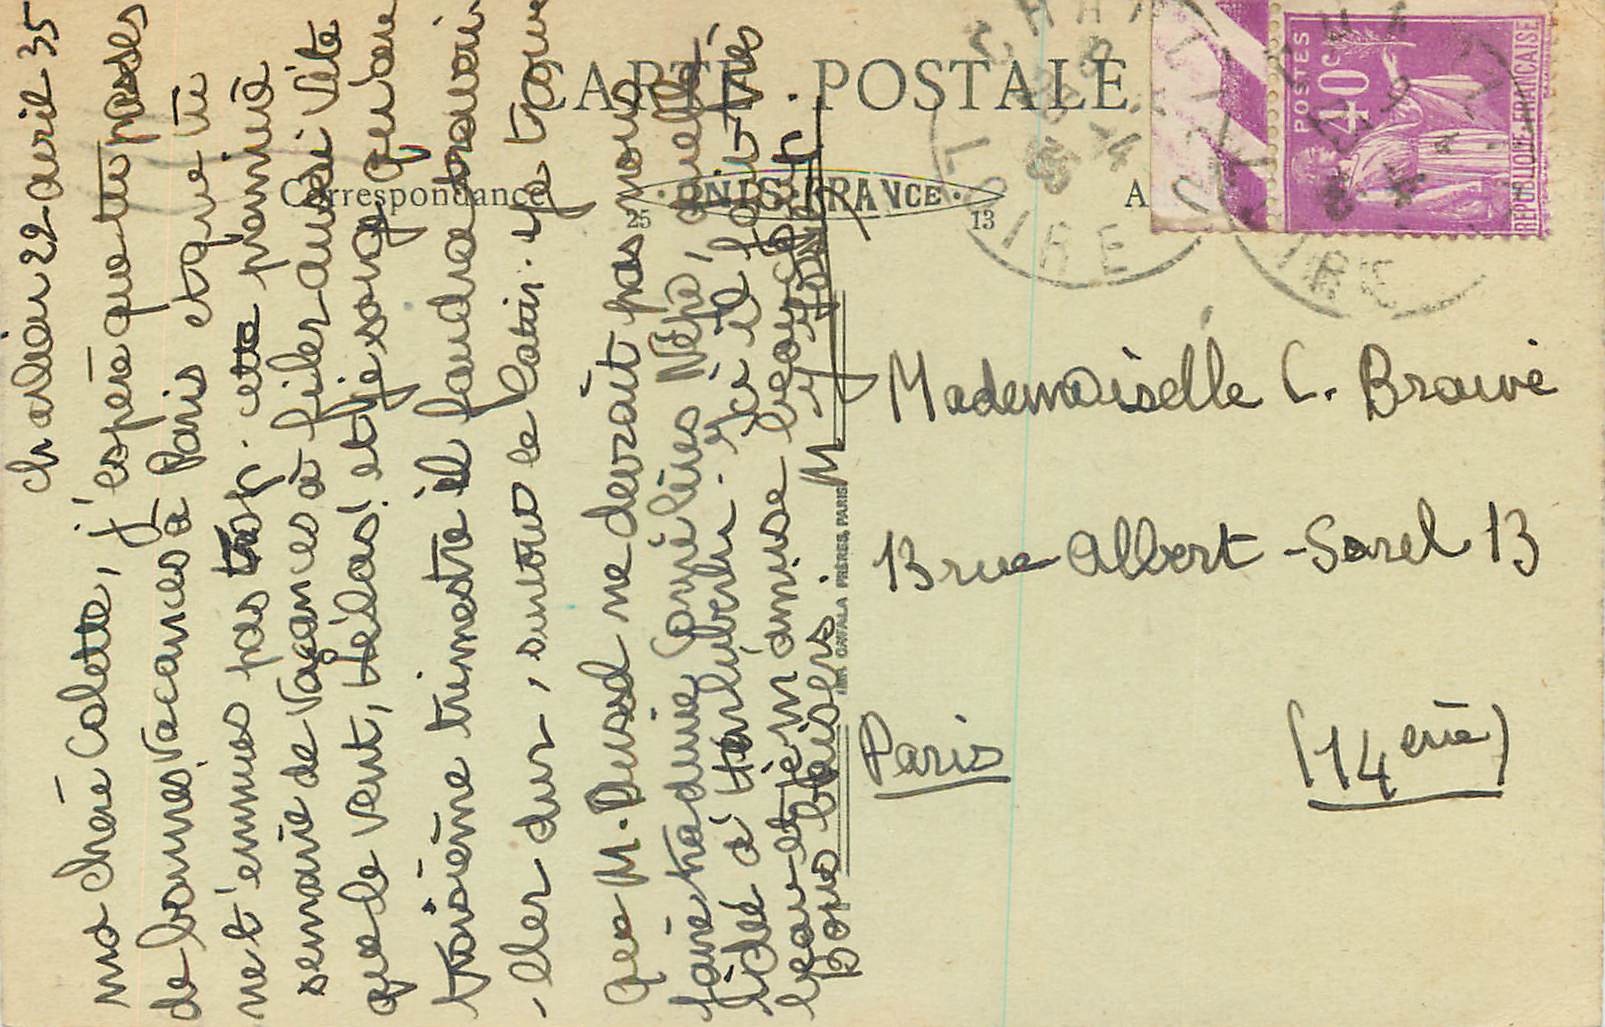 CARTE POSTALE
Correspondance
UNIS-FRANCE
25 13
A
POSTES
40c
REPUBLIQUE FRANÇAISE
CHARLIEU
LOIRE
Charlieu 22 avril 35
ma chère Colette, j'espère que tu passes
de bonnes vacances à Paris et que tu
ne t'ennuies pas trop. cette première
semaine de vacances à filer aussi vite
que le vent, Hélas! et je songe qu'au
troisième trimestre il faudra travail
-ler dur, surtout le latin. je trouve
que M. Durand ne devrait pas nous
faire traduire Cornélius Népo, quelle
idée à Ici il fait très
beau et je m'amuse beaucoup
Bons baisers. M.
IMP. CAVALA FRÈRES, PARIS
Mademoiselle C. Brouvé
13 rue Albert-Sorel 13
Paris (14ème)